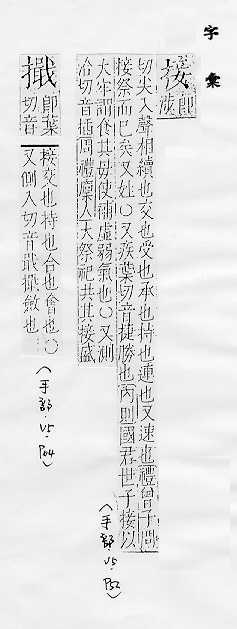 字彙
接 即涉
切尖入聲相續也交也受也承也持也連也又速也禮曾子問
接祭而已矣又姓○又疾葉切音捷勝也內則國君世子接以
大牢謂食其母使補虛弱氣也○又測
洽切音插周禮廩人大祭祀共其接盛
(手部.V5.P52)
即葉切音
接交也持也合也會也○
又側入切音戢斂也
(手部.V5.P64)